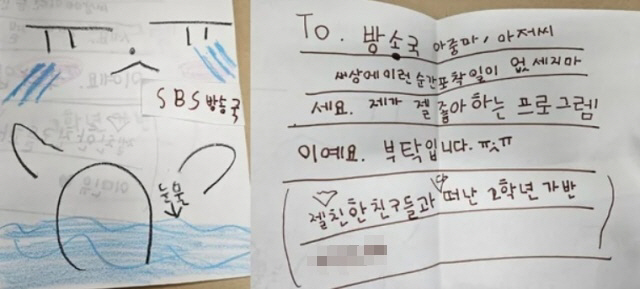 SBS방송국
눈물
To. 방소국 아줌마, 아저씨
새상에이런 순간포착일이 없세지마
세요. 제가 젤 좋아하는 프로그렘
이예요. 부탁입니다. ㅠㅠ
젤친한친구들과 떠난 2학년 가반